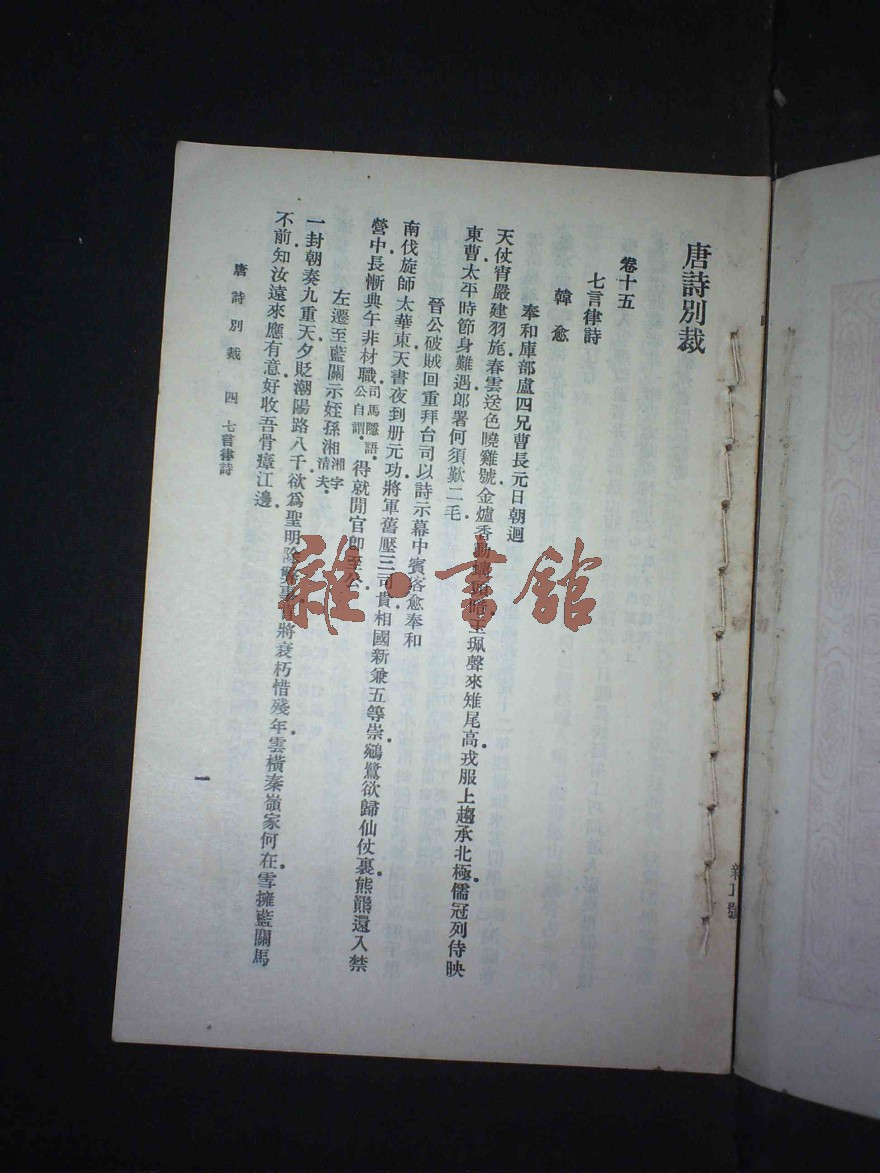 唐詩別裁
卷十五
七言律詩
韓愈
奉和庫部盧四兄曹長元日朝迴
天仗宵嚴建羽旄春雲送色曉雞號金爐香動螭頭暗玉珮聲來雉尾高戎服上趨承北極儒冠列侍映
東曹太平時節身難遇郎署何須歎二毛
晉公破賊回重拜台司以詩示幕中賓客愈奉和
南伐旋師太華東天書夜到册元功將軍舊壓三司貴相國新兼五等崇鵷鷺欲歸仙仗裏熊羆還入禁
營中長慚典午非材職司馬隱語公自謂得就閒官即至公
左遷至藍關示姪孫湘湘字清夫
一封朝奏九重天夕貶潮陽路八千欲爲聖明除弊事肯將衰朽惜殘年雲橫秦嶺家何在雪擁藍關馬
不前知汝遠來應有意好收吾骨瘴江邊
唐詩別裁 四 七言律詩
一
雜·書館